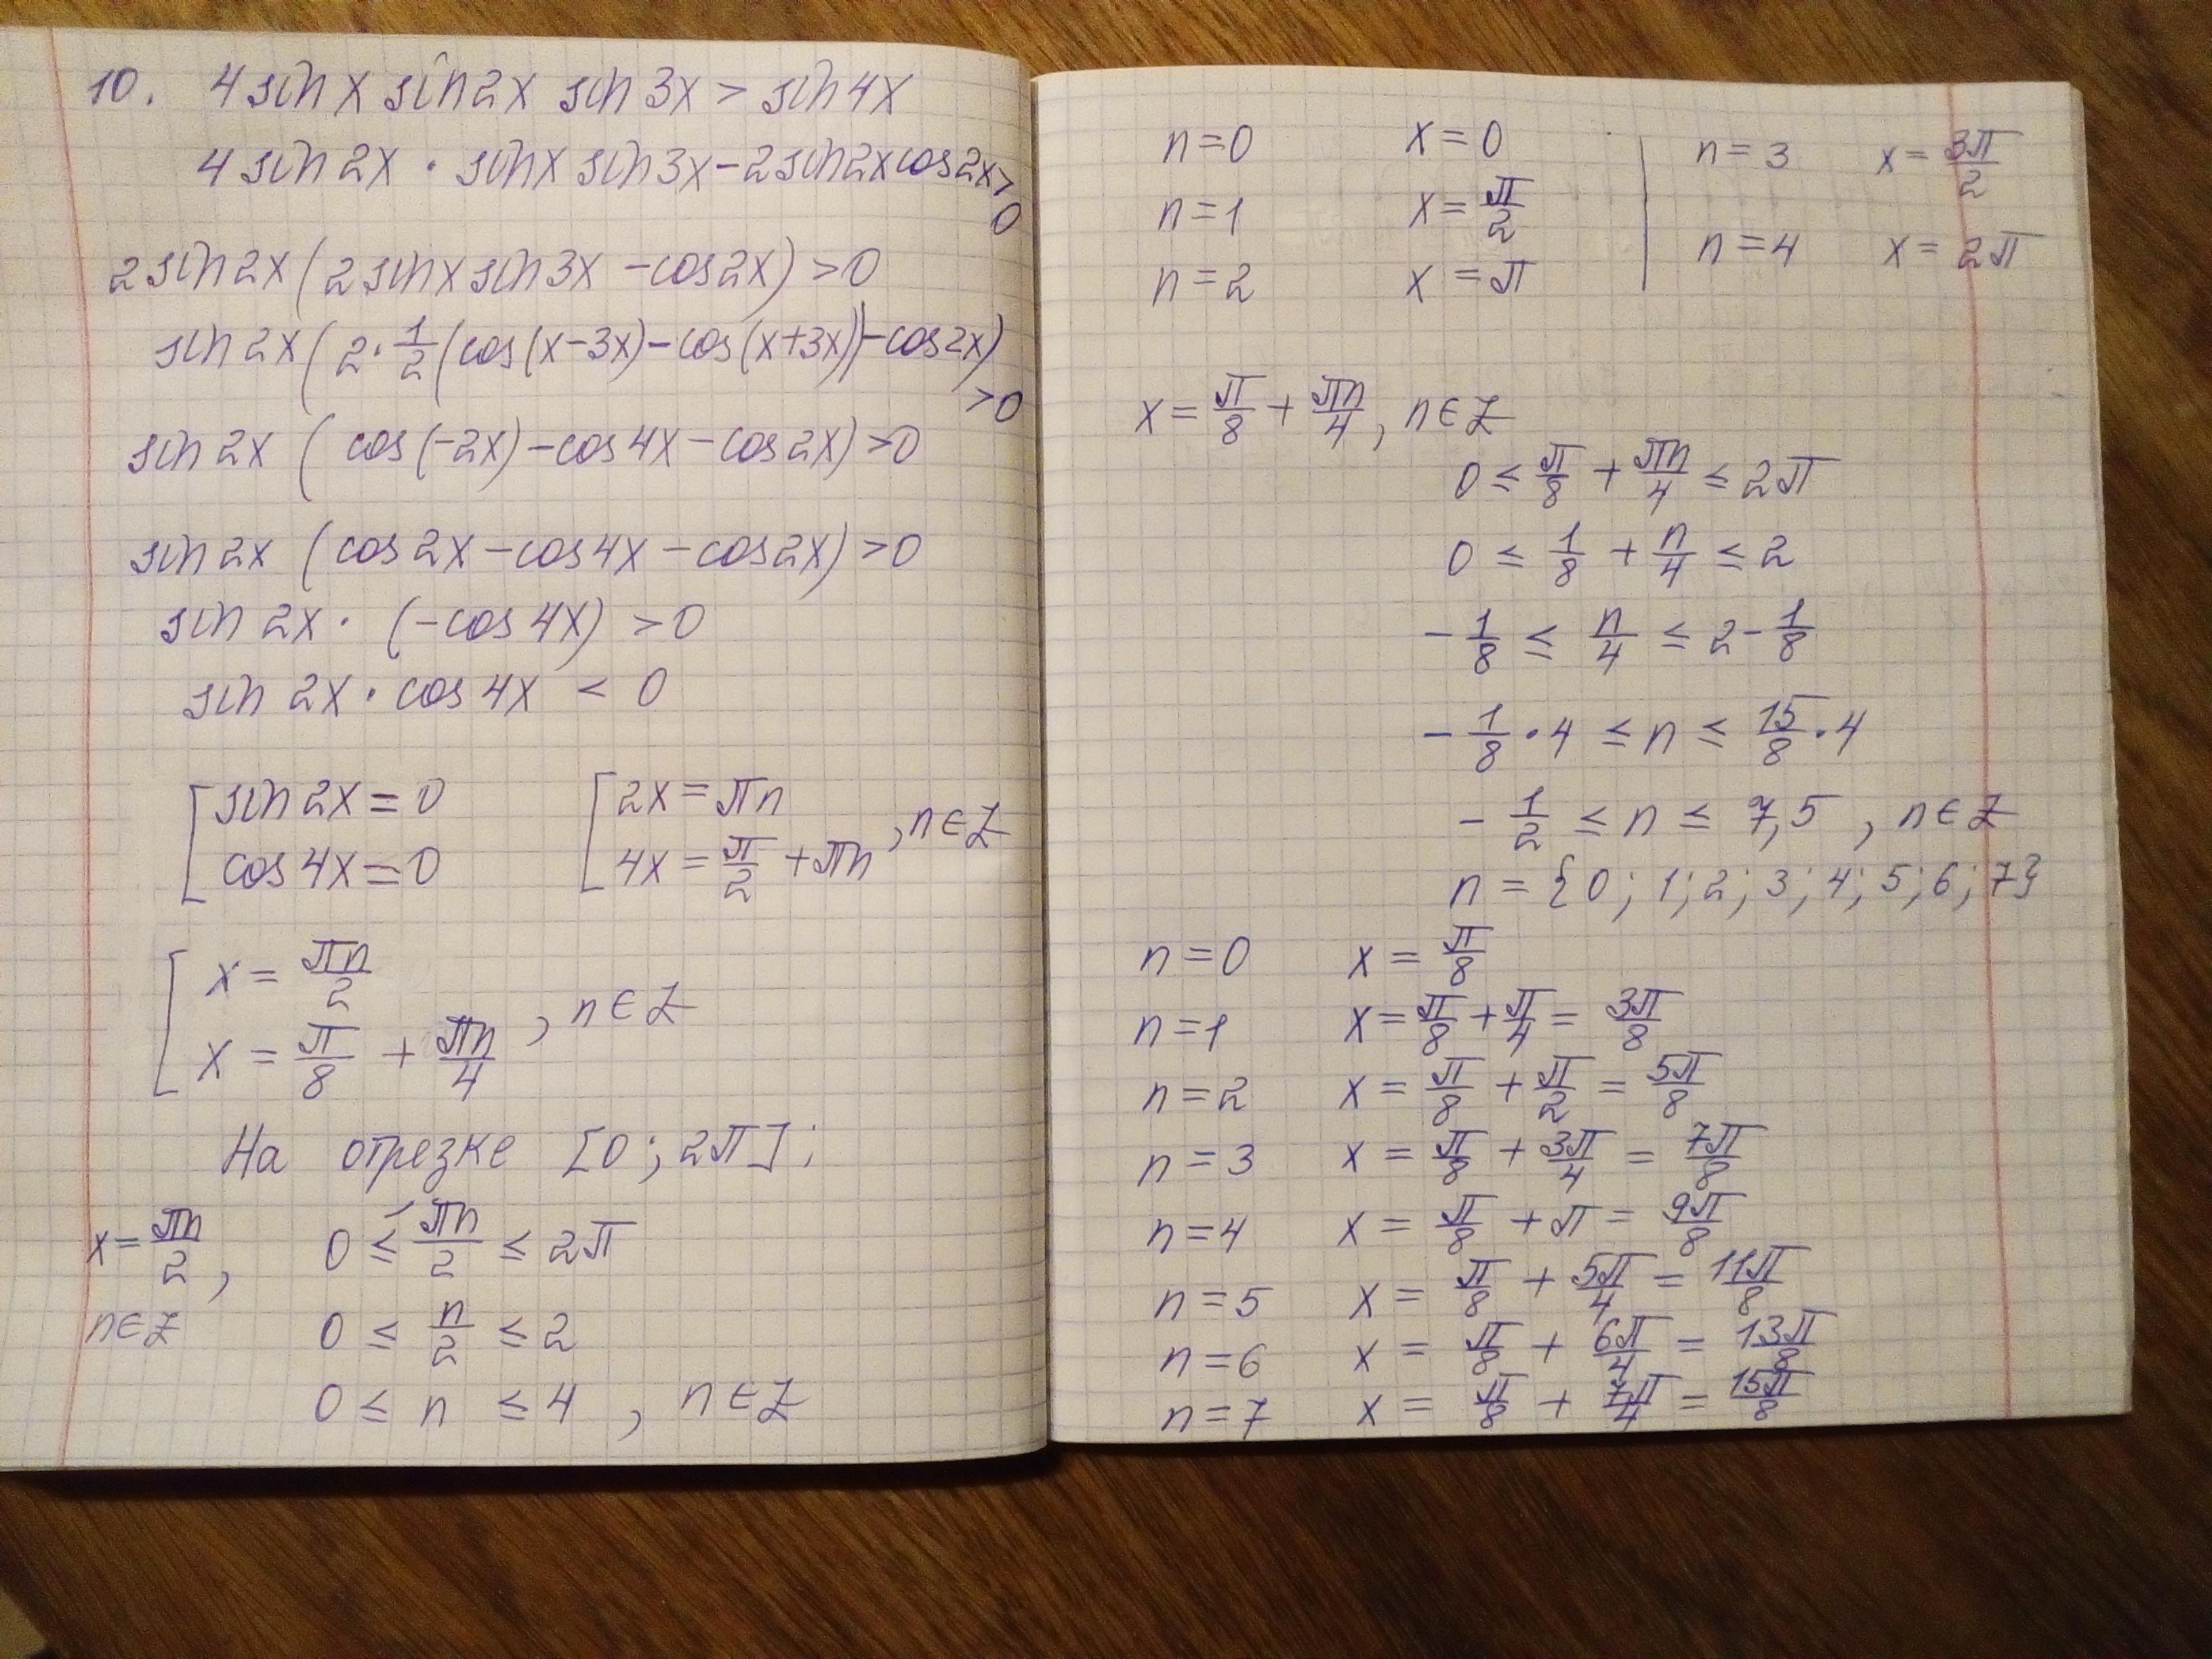 10. 4 sin x sin 2x sin 3x > sin 4x
4 sin 2x · sin x sin 3x − 2 sin 2x cos 2x > 0
2 sin 2x (2 sin x sin 3x − cos 2x) > 0
sin 2x (2 · 1/2 (cos(x−3x) − cos(x+3x)) − cos 2x) > 0
sin 2x (cos(−2x) − cos 4x − cos 2x) > 0
sin 2x (cos 2x − cos 4x − cos 2x) > 0
sin 2x · (−cos 4x) > 0
sin 2x · cos 4x < 0
[ sin 2x = 0 [ 2x = πn
[ cos 4x = 0 [ 4x = π/2 + πn , n ∈ Z
[ x = πn/2
[ x = π/8 + πn/4 , n ∈ Z
На отрезке [0; 2π]:
x = πn/2, 0 ≤ πn/2 ≤ 2π
n ∈ Z 0 ≤ n/2 ≤ 2
0 ≤ n ≤ 4 , n ∈ Z
n = 0 x = 0 | n = 3 x = 3π/2
n = 1 x = π/2
n = 2 x = π | n = 4 x = 2π
x = π/8 + πn/4, n ∈ Z
0 ≤ π/8 + πn/4 ≤ 2π
0 ≤ 1/8 + n/4 ≤ 2
− 1/8 ≤ n/4 ≤ 2 − 1/8
− 1/8 · 4 ≤ n ≤ 15/8 · 4
− 1/2 ≤ n ≤ 7,5 , n ∈ Z
n = {0; 1; 2; 3; 4; 5; 6; 7}
n = 0 x = π/8
n = 1 x = π/8 + π/4 = 3π/8
n = 2 x = π/8 + π/2 = 5π/8
n = 3 x = π/8 + 3π/4 = 7π/8
n = 4 x = π/8 + π = 9π/8
n = 5 x = π/8 + 5π/4 = 11π/8
n = 6 x = π/8 + 6π/4 = 13π/8
n = 7 x = π/8 + 7π/4 = 15π/8